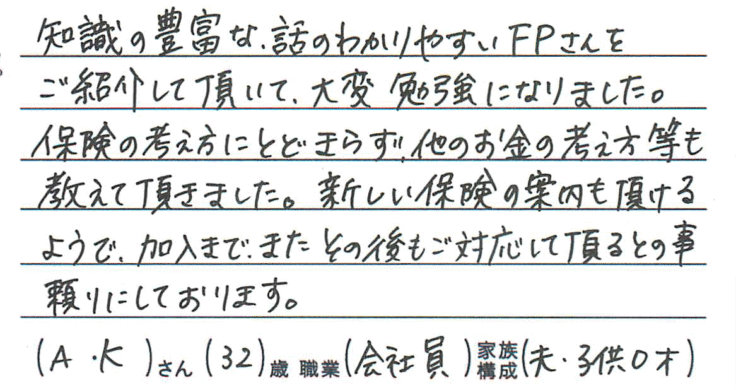 知識の豊富な、話のわかりやすいFPさんを
ご紹介して頂いて、大変 勉強になりました。
保険の考え方にとどまらず、他のお金の考え方等も
教えて頂きました。新しい保険の案内も頂ける
ようで、加入まで、また その後もご対応して頂るとの事
頼りにしております。
(A・K)さん(32)歳 職業(会社員)家族構成(夫・子供0才)